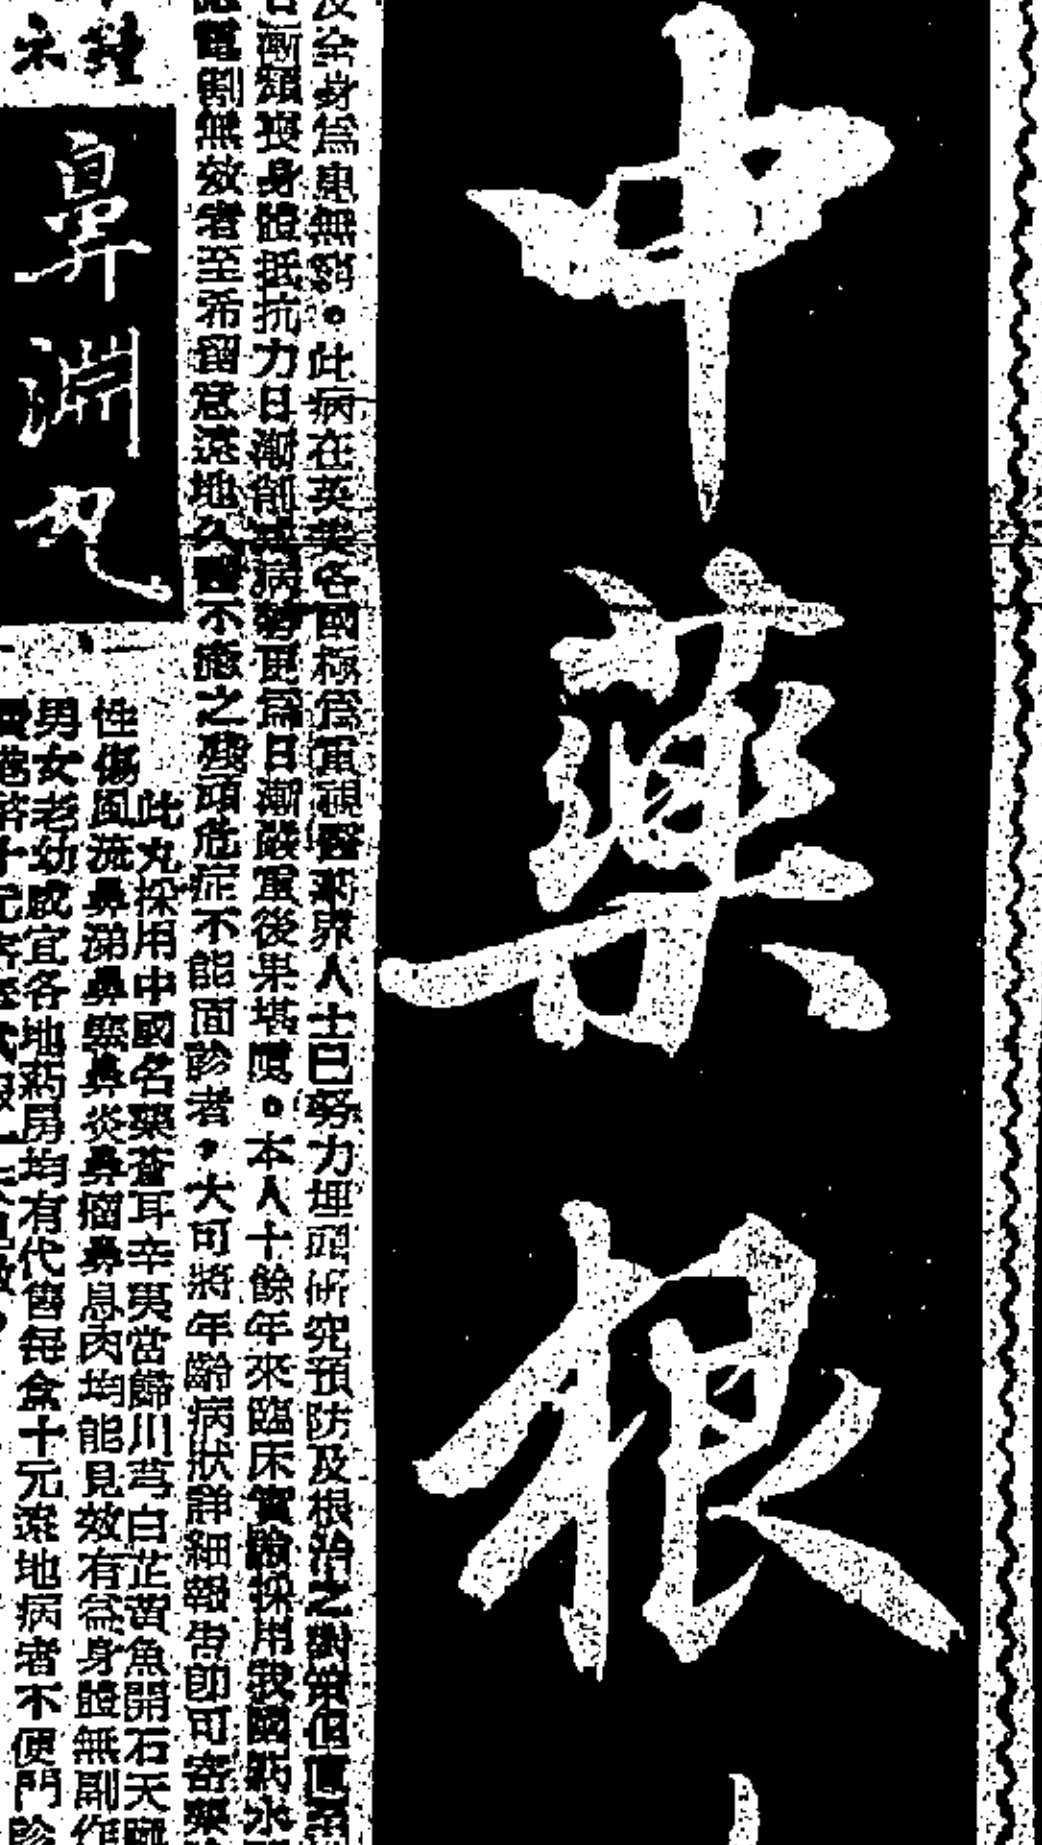 中藥根
及全身為患無窮。此病在英美各國極為重視醫藥界人士已努力埋頭研究預防及根治之對策但應
漸頹喪身體抵抗力日漸創或病勢更為日漸嚴重後果堪虞。本人十餘年來臨床實驗採用我國藥水
電割無效者至希留意遠地久醫不癒之殘頑危症不能面診者，大可將年齡病狀詳細報告即可寄藥
鼻淵丸
此丸採用中國名藥蒼耳辛夷當歸川芎白芷黃魚開石天
性傷風流鼻涕鼻塞鼻炎鼻瘤鼻息肉均能見效有益身體無副作
男女老幼咸宜各地药房均有代售每盒十元遠地病者不便門診